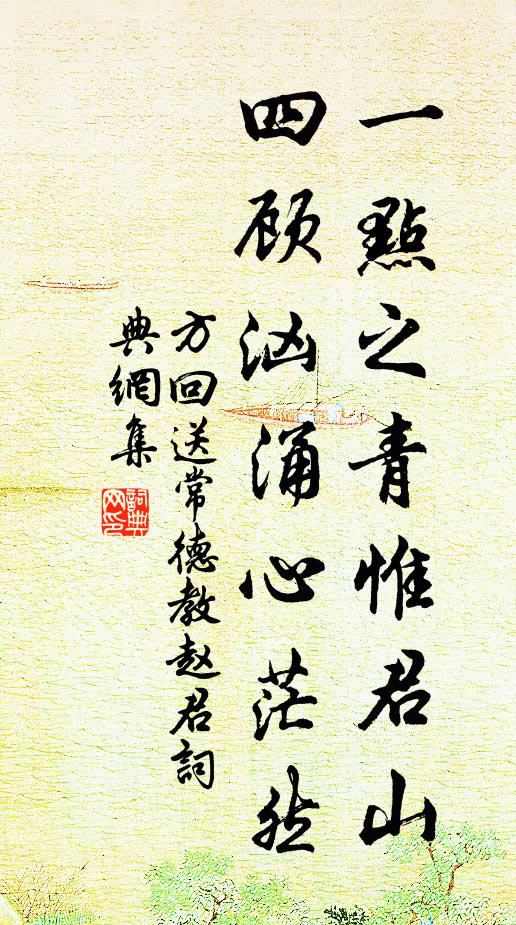 一點之青惟君山
四顾汹涌心茫然
方回送常德教赵君詞
典網集
詞典
网印